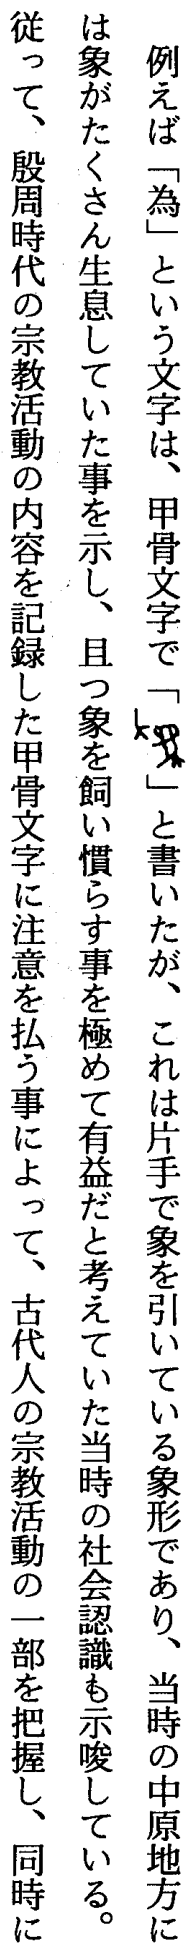 例えば「為」という文字は、甲骨文字で「」と書いたが、これは片手で象を引いている象形であり、当時の中原地方に
は象がたくさん生息していた事を示し、且つ象を飼い慣らす事を極めて有益だと考えていた当時の社会認識も示唆している。
従って、殷周時代の宗教活動の内容を記録した甲骨文字に注意を払う事によって、古代人の宗教活動の一部を把握し、同時に